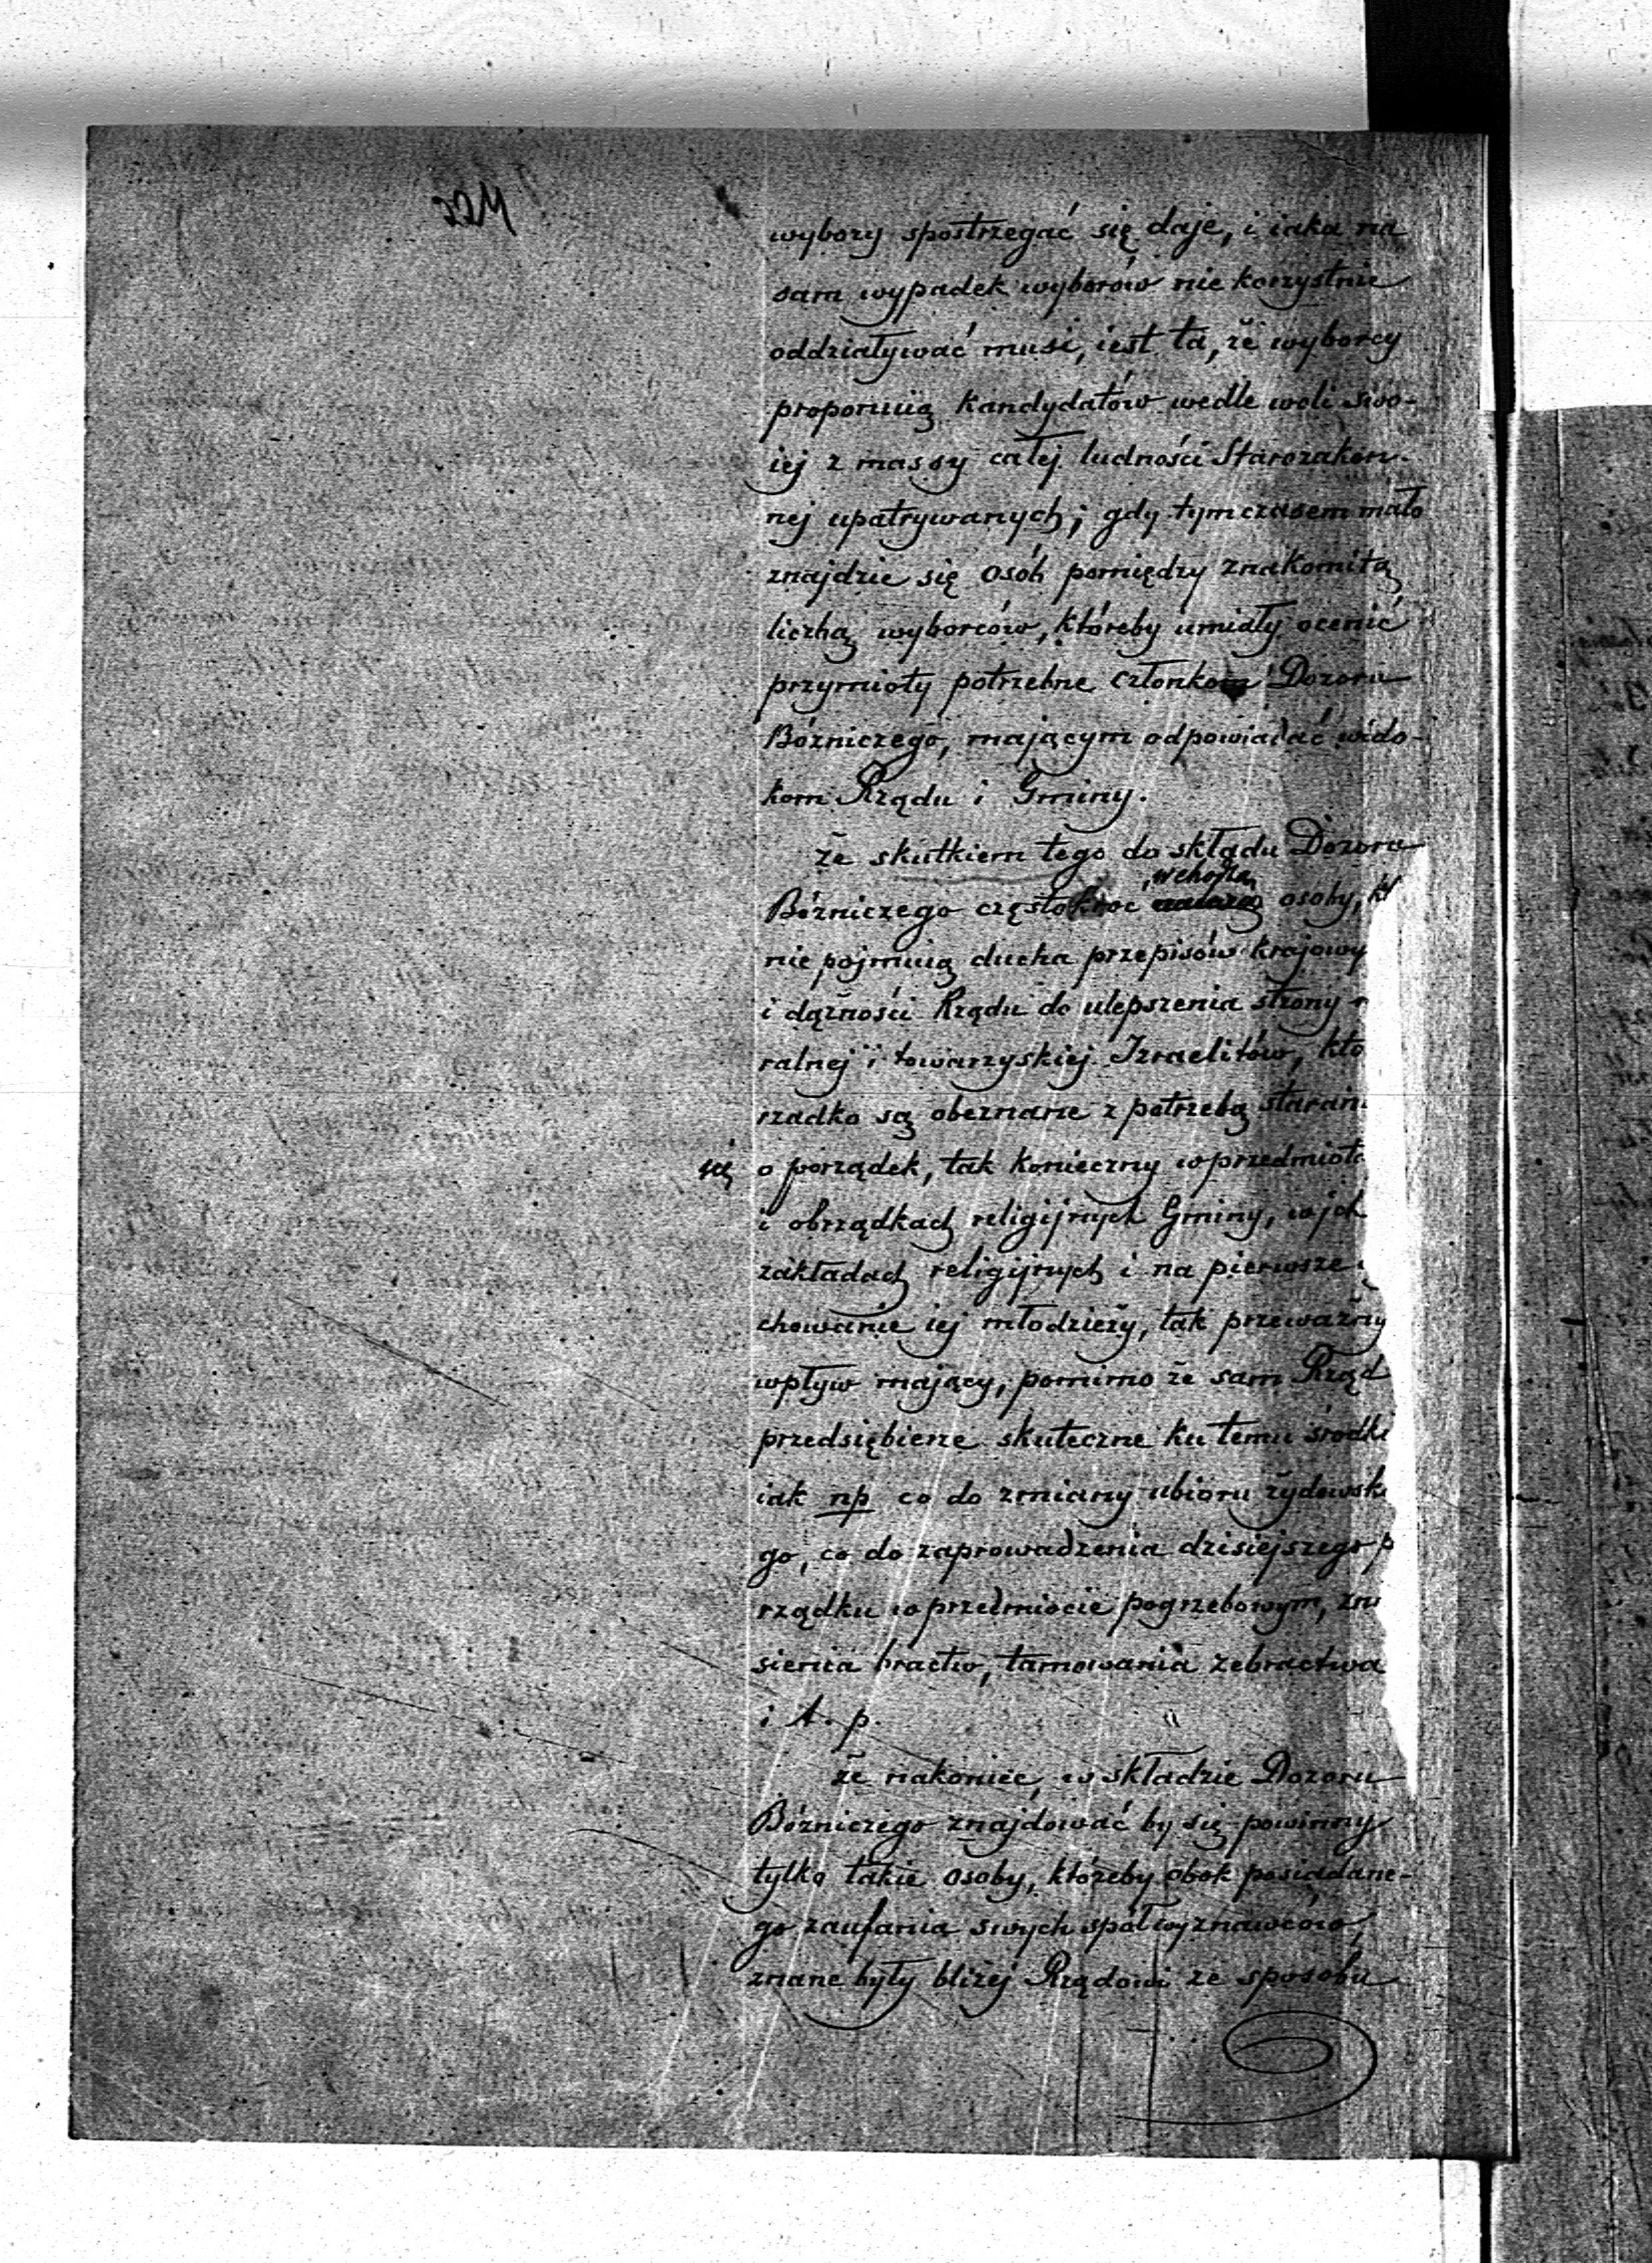 224
wybory spostrzegać się daje, i iaka na
sam wypadek wyborów nie korzystnie
oddziaływać musi, iest ta, że wyborcy
proponuią kandydatów wedle woli swo-
iej z massy całej ludności Starozakon-
nej upatrywanych; gdy tymczasem mało
znajdzie się osób pomiędzy znakomitą
liczbą wyborców, któreby umiały ocenić
przymioty potrzebne członkom Dozoru
Bóżniczego, mającym odpowiadać wido-
kom Rządu i Gminy.
że skutkiem tego do składu Dozoru
wchodzą
Bóżniczego częstokroć osoby, kt
nie pojmuią ducha przepisów krajowy
i dążności Rządu do ulepszenia strony
ralnej i towarzyskiej Izraelitów, któ
rzadko są obeznane z potrzebą staran
się o porządek, tak konieczny w przedmiota
i obrządkach religijnych Gminy, w jch
zakładach religijnych i na pierwsze
chowanie iej młodzieży, tak przeważny
wpływ mający, pomimo że sam Rząd
przedsiębierze skuteczne ku temu środki
iak np co do zmiany ubioru żydowski
go, co do zaprowadzenia dzisiejszego p
rządku w przedmiocie pogrzebowym, zni
sienia bractw, tamowania żebractwa
i t. p.
że nakoniec, w składzie Dozoru
Bóżniczego znajdować by się powinny
tylko takie osoby, któreby obok posiadane-
go zaufania swych spółwyznawców,
znane były bliżej Rządowi ze sposobu